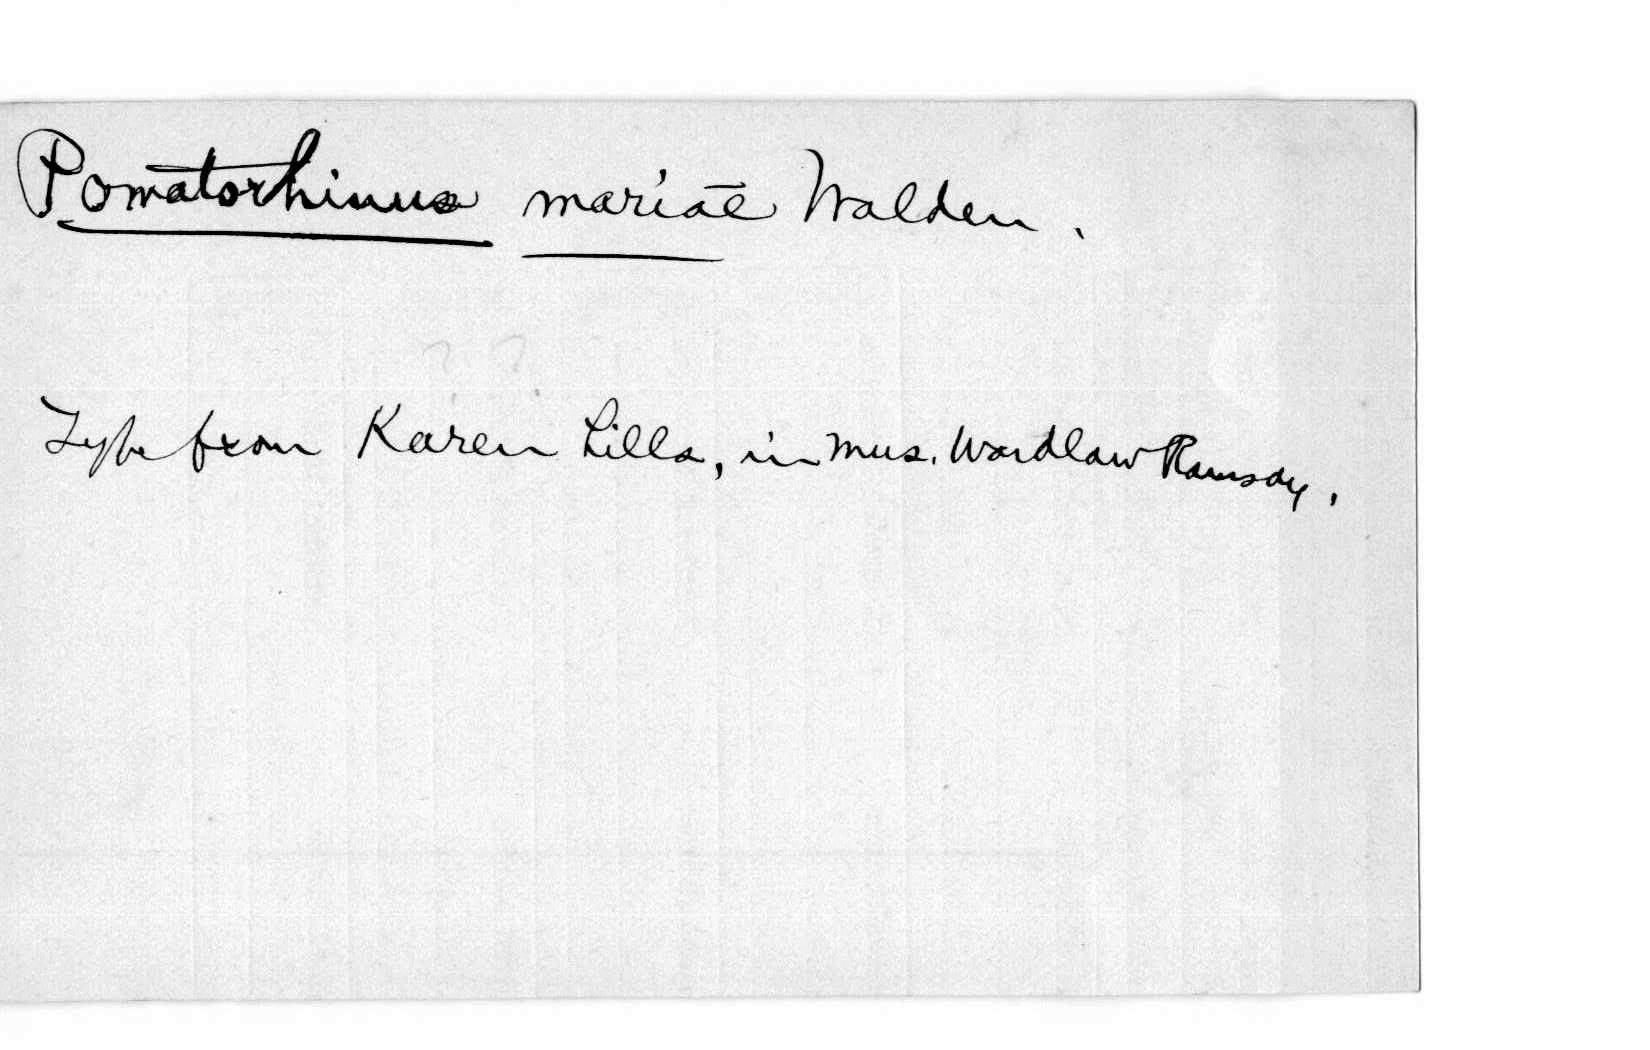 Pomatorhinus mariae Walden.
Type from Karen hills, in mus. Wardlaw Ramsay.